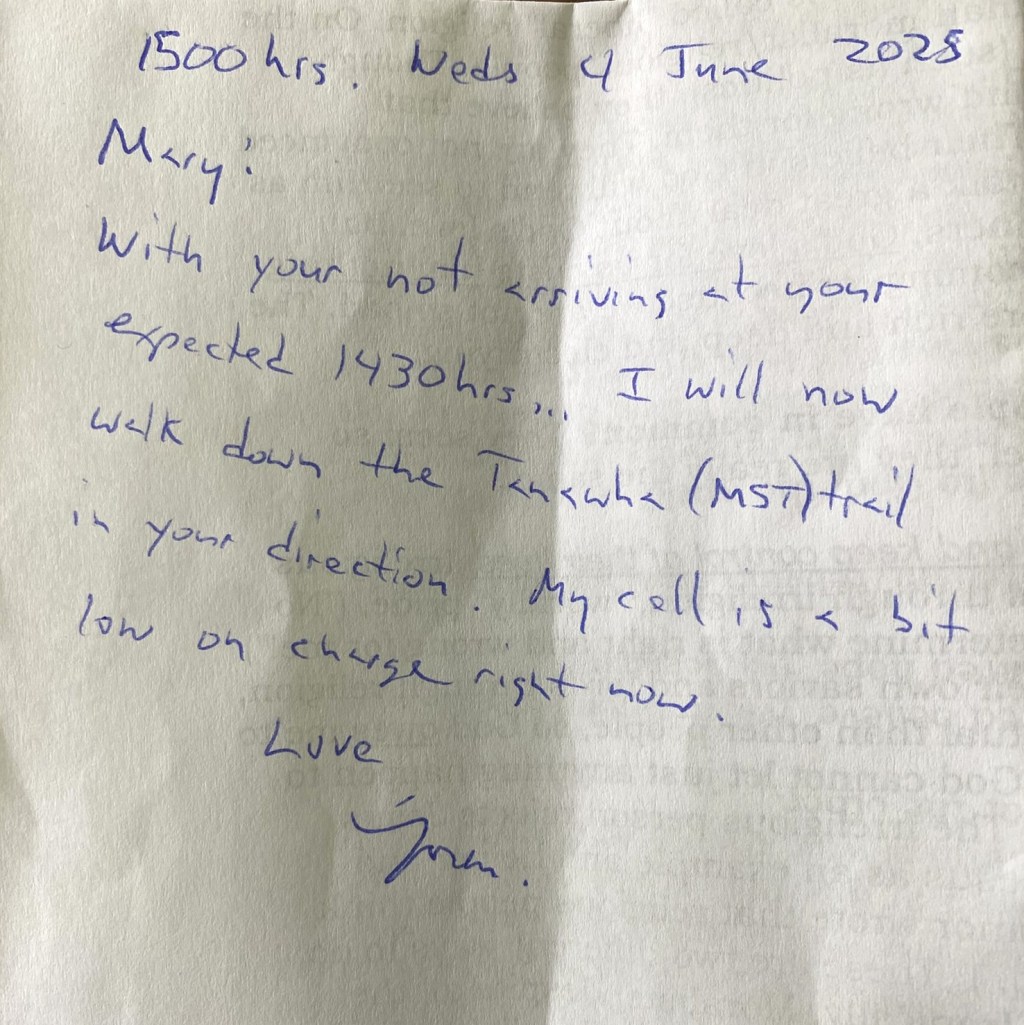 1500 hrs. Weds 4 June 2025
Mary:
With your not arriving at your
expected 1430 hrs... I will now
walk down the Tanawha (MST) trail
in your direction. My cell is a bit
low on charge right now.
Love